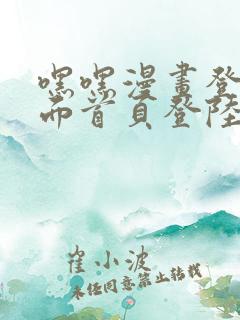 嘿嘿漫畫登
而首頁登陸
崔小波
未经同意禁止转载